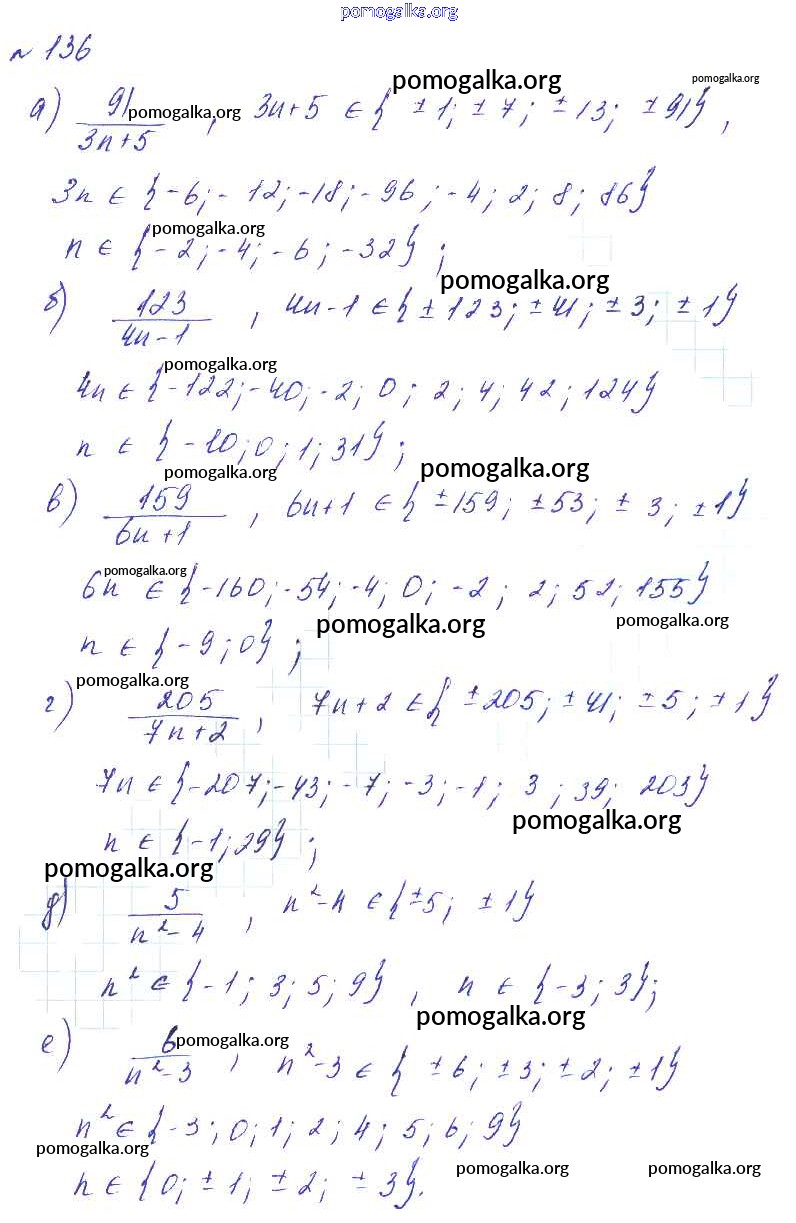 pomogalka.org
№ 136
pomogalka.org pomogalka.org
а) 91/(3n+5) , 3n+5 ∈ { ±1; ±7; ±13; ±91} ,
pomogalka.org
3n ∈ {-6; -12; -18; -96; -4; 2; 8; 86}
pomogalka.org
n ∈ {-2; -4; -6; -32} ;
pomogalka.org
б) 123/(4n-1) , 4n-1 ∈ {±123; ±41; ±3; ±1}
pomogalka.org
4n ∈ {-122; -40; -2; 0; 2; 4; 42; 124}
n ∈ {-10; 0; 1; 31} ;
pomogalka.org pomogalka.org
в) 159/(6n+1) , 6n+1 ∈ {±159; ±53; ±3; ±1}
pomogalka.org
6n ∈ {-160; -54; -4; 0; -2; 2; 52; 155}
pomogalka.org pomogalka.org
n ∈ {-9; 0} ;
pomogalka.org
г) 205/(7n+2) , 7n+2 ∈ {±205; ±41; ±5; ±1}
7n ∈ {-207; -43; -7; -3; -1; 3; 39; 203}
pomogalka.org
n ∈ {-1; 29} ;
pomogalka.org
д) 5/(n²-4) , n²-4 ∈ {±5; ±1}
n² ∈ {-1; 3; 5; 9} , n ∈ {-3; 3};
pomogalka.org
е) 6/(n²-3) , n²-3 ∈ { ±6; ±3; ±2; ±1}
pomogalka.org
n² ∈ {-3; 0; 1; 2; 4; 5; 6; 9}
pomogalka.org
n ∈ {0; ±1; ±2; ±3}.
pomogalka.org pomogalka.org